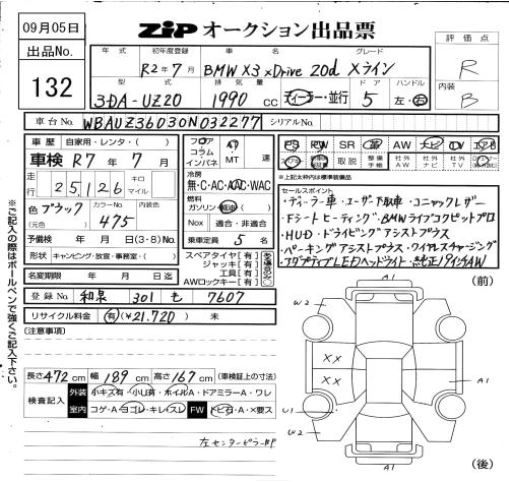 09月05日
ZiP オークション出品票
出品No.
132
年式 初年度登録 車名 グレード
R2年7月 BMW X3 xDrive 20d Xライン
型式 排気量 ドア ハンドル
3DA-UZ20 1990 cc ディーラー・並行 5 左・右
評価点
R
内装
B
車台No. WBAUZ36030N032277 シリアルNo.
車歴 自家用・レンタ・( )
車検 R7年7月
走行 25,126 キロ マイル
色 ブラック カラーNo 内装色
(元色 ) 475
予備検 年 月 日(3・8)No.
形状 キャンピング・放宣・事務室・( )
名変期限 年 月 日迄
フロア コラム インパネ AT MT 速
冷房 無・C・AC・AAC・WAC
燃料 ガソリン・軽油・( )
Nox 適合・非適合
乗車定員 5 名
スペアタイヤ(有)
ジャッキ(有)
工具(有)
AWロックキー(有)
PS PW SR AW ナビ TV
取説 整備手帖 社外AW 社外ナビ 社外TV
※上記太枠内は標準装備品
セールスポイント
・ディーラー車・ユーザー下取車・コニャックレザー
・Fシートヒーティング・BMWライブコクピットプロ
・HUD・ドライビングアシストプラス
・パーキングアシストプラス・ワイヤレスチャージング
・アダプティブLEDヘッドライト・純正19インチAW
登録No 和泉 301 も 7607
リサイクル料金 有(¥21,720) 未
(注意事項)
長さ472cm 幅189cm 高さ167cm (車検証上の寸法)
検査記入 外装 小キズ有・小凹有・ホイルA・ドアミラーA・ワレ
室内 コゲ・A・ヨゴレ・キレ・スレ FW トビ石・A・×要ス
左センターピラーBP
※ご記入の際はボールペンで強くご記入下さい。
(前)
A1
W2
XX
XX
A1
U1
W2
A1
(後)